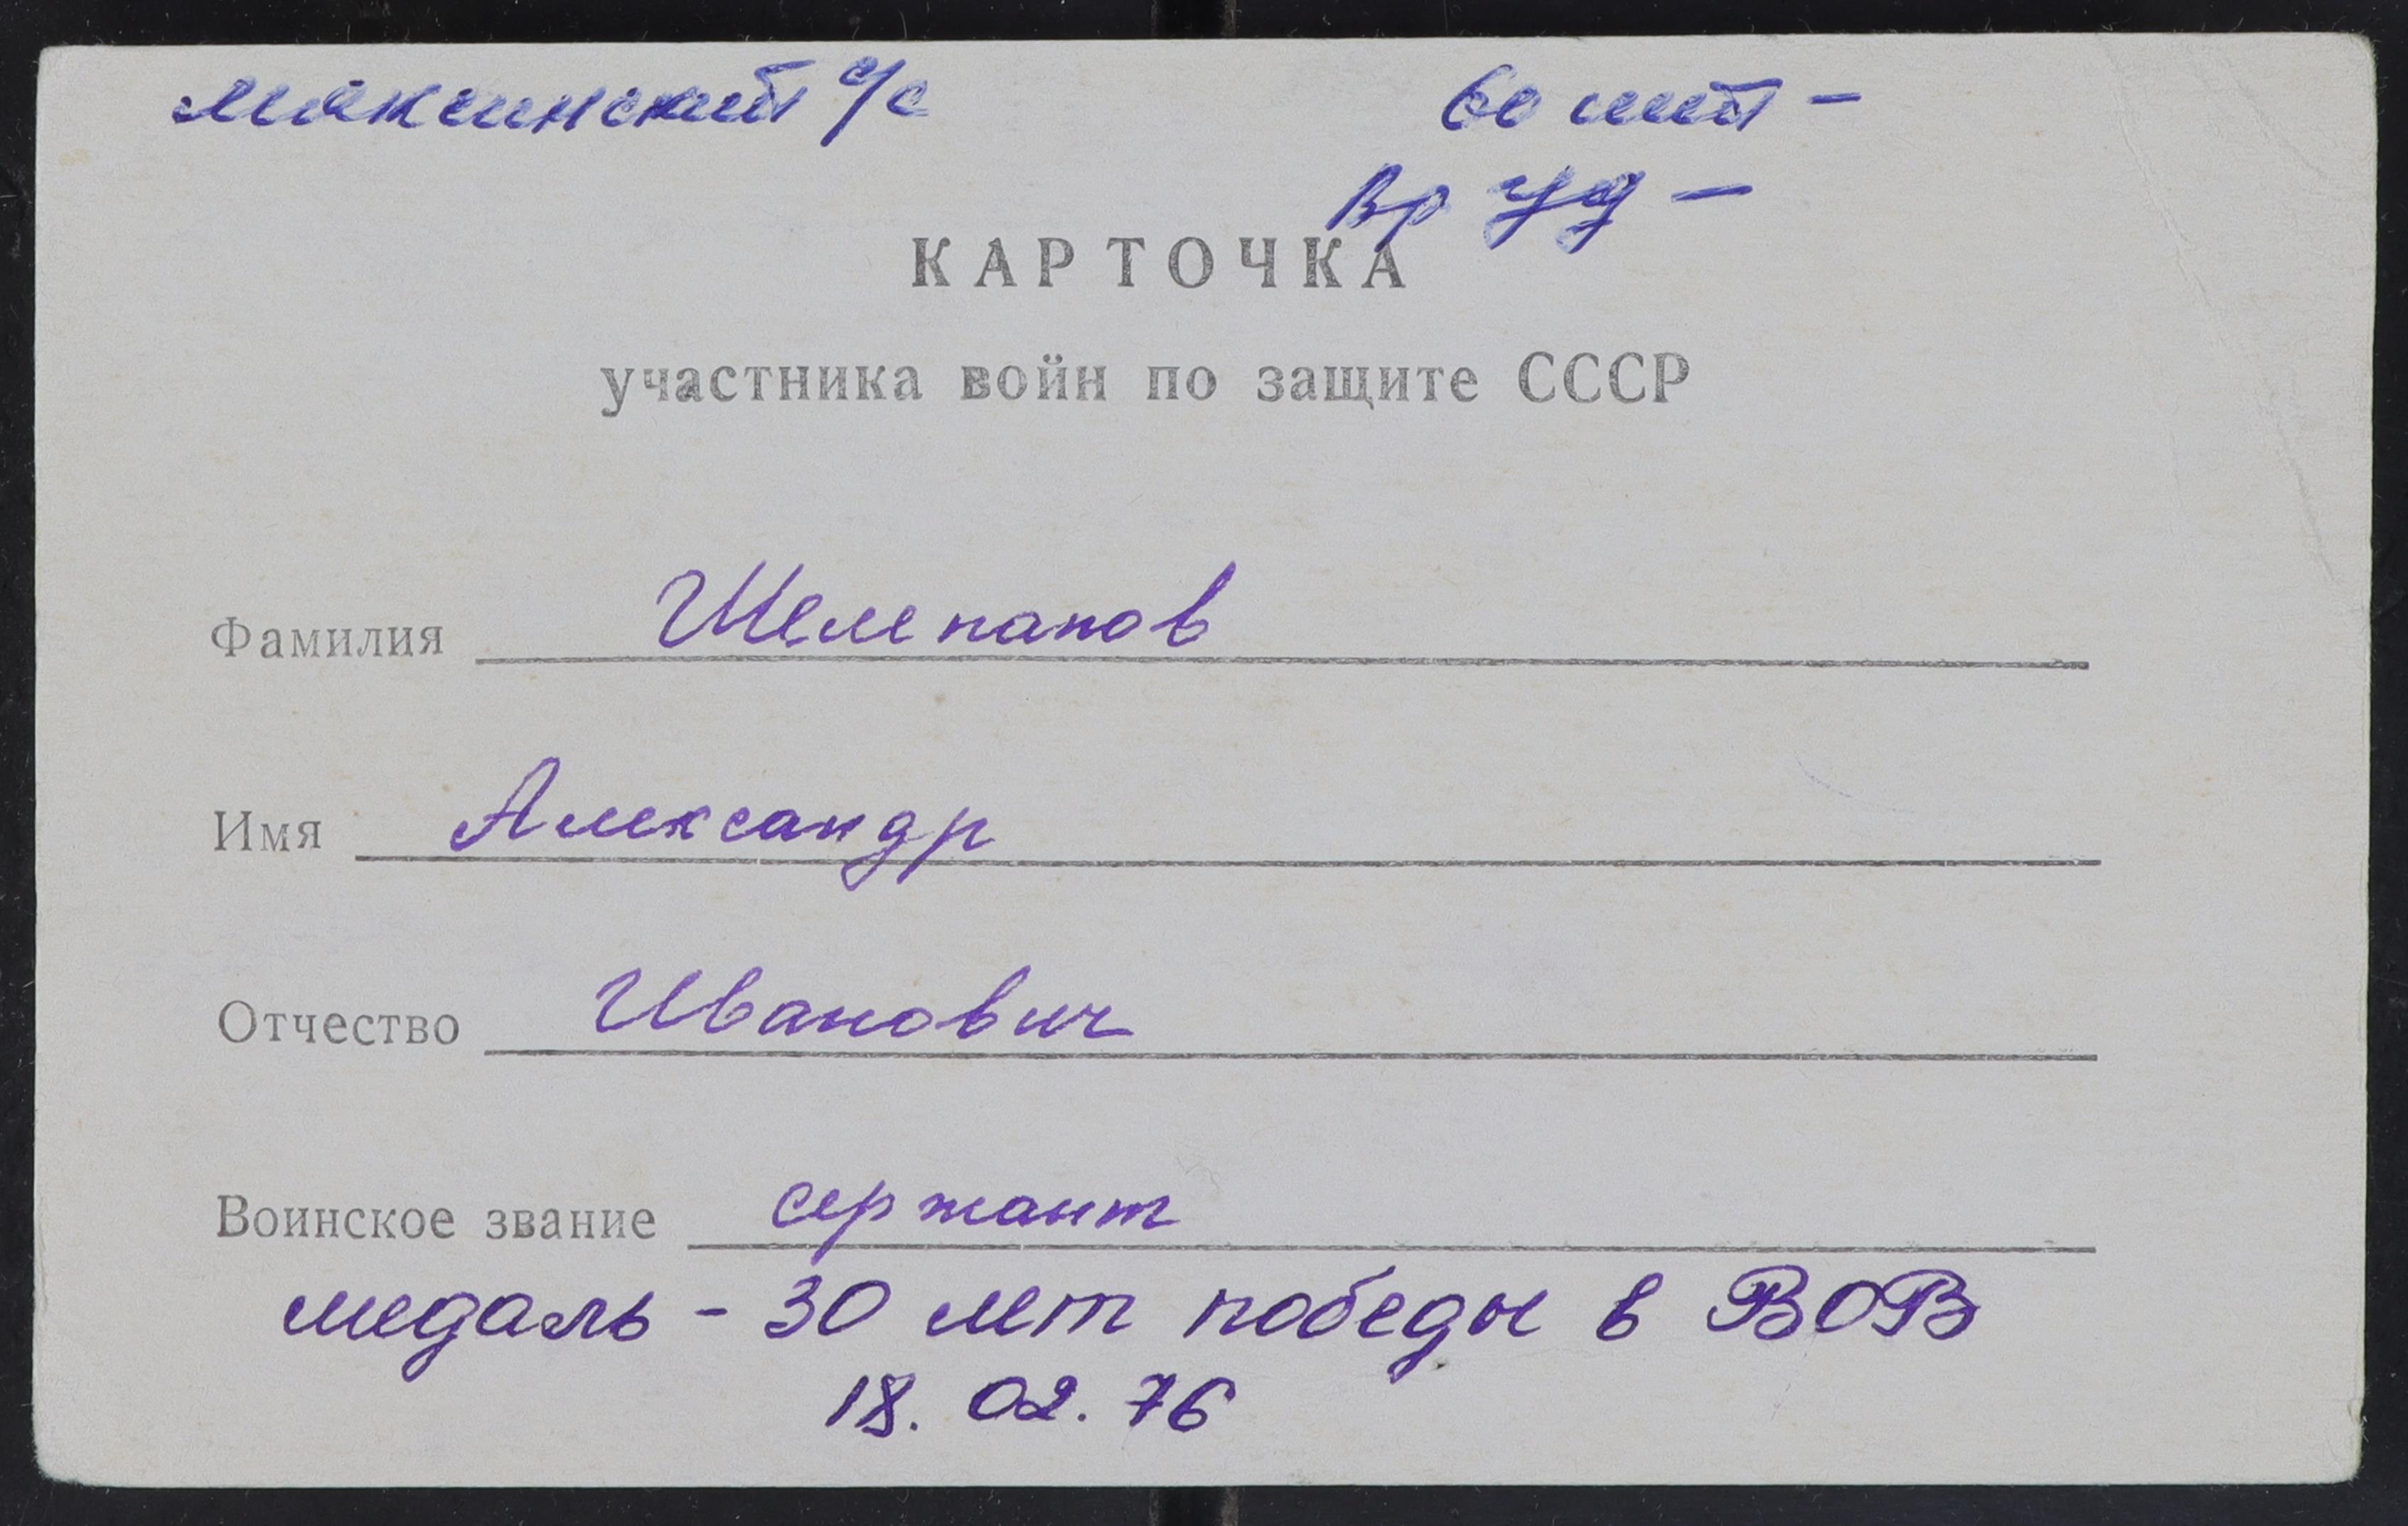 Макшинский с/с
60 лет -
Вр уд -
КАРТОЧКА
участника войн по защите СССР
Фамилия Шелепанов
Имя Александр
Отчество Иванович
Воинское звание сержант
медаль - 30 лет победы в ВОВ
18.02.76